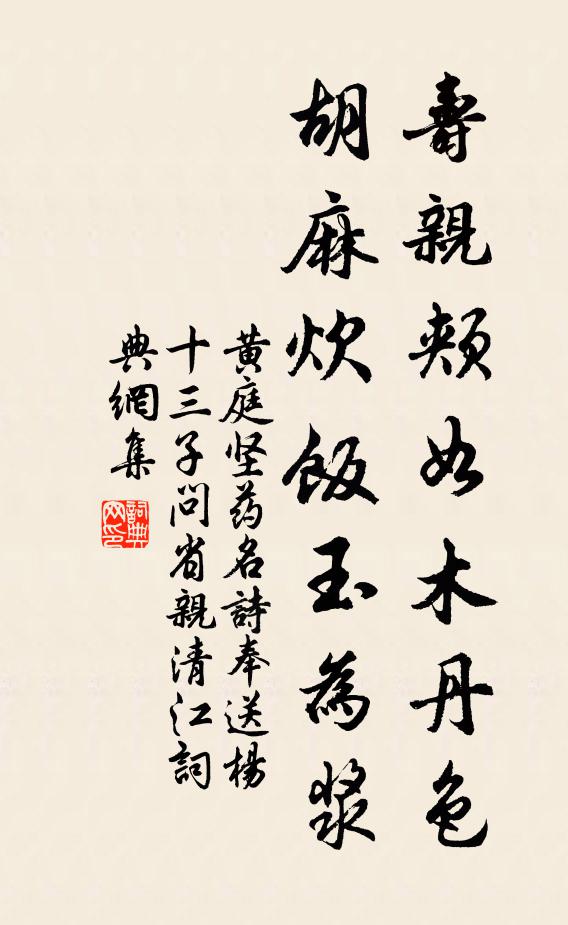 壽親頰如木丹色
胡麻炊飯玉為漿
黄庭坚药名詩奉送楊
十三子问省親清江詞
典網集
詞典
网印